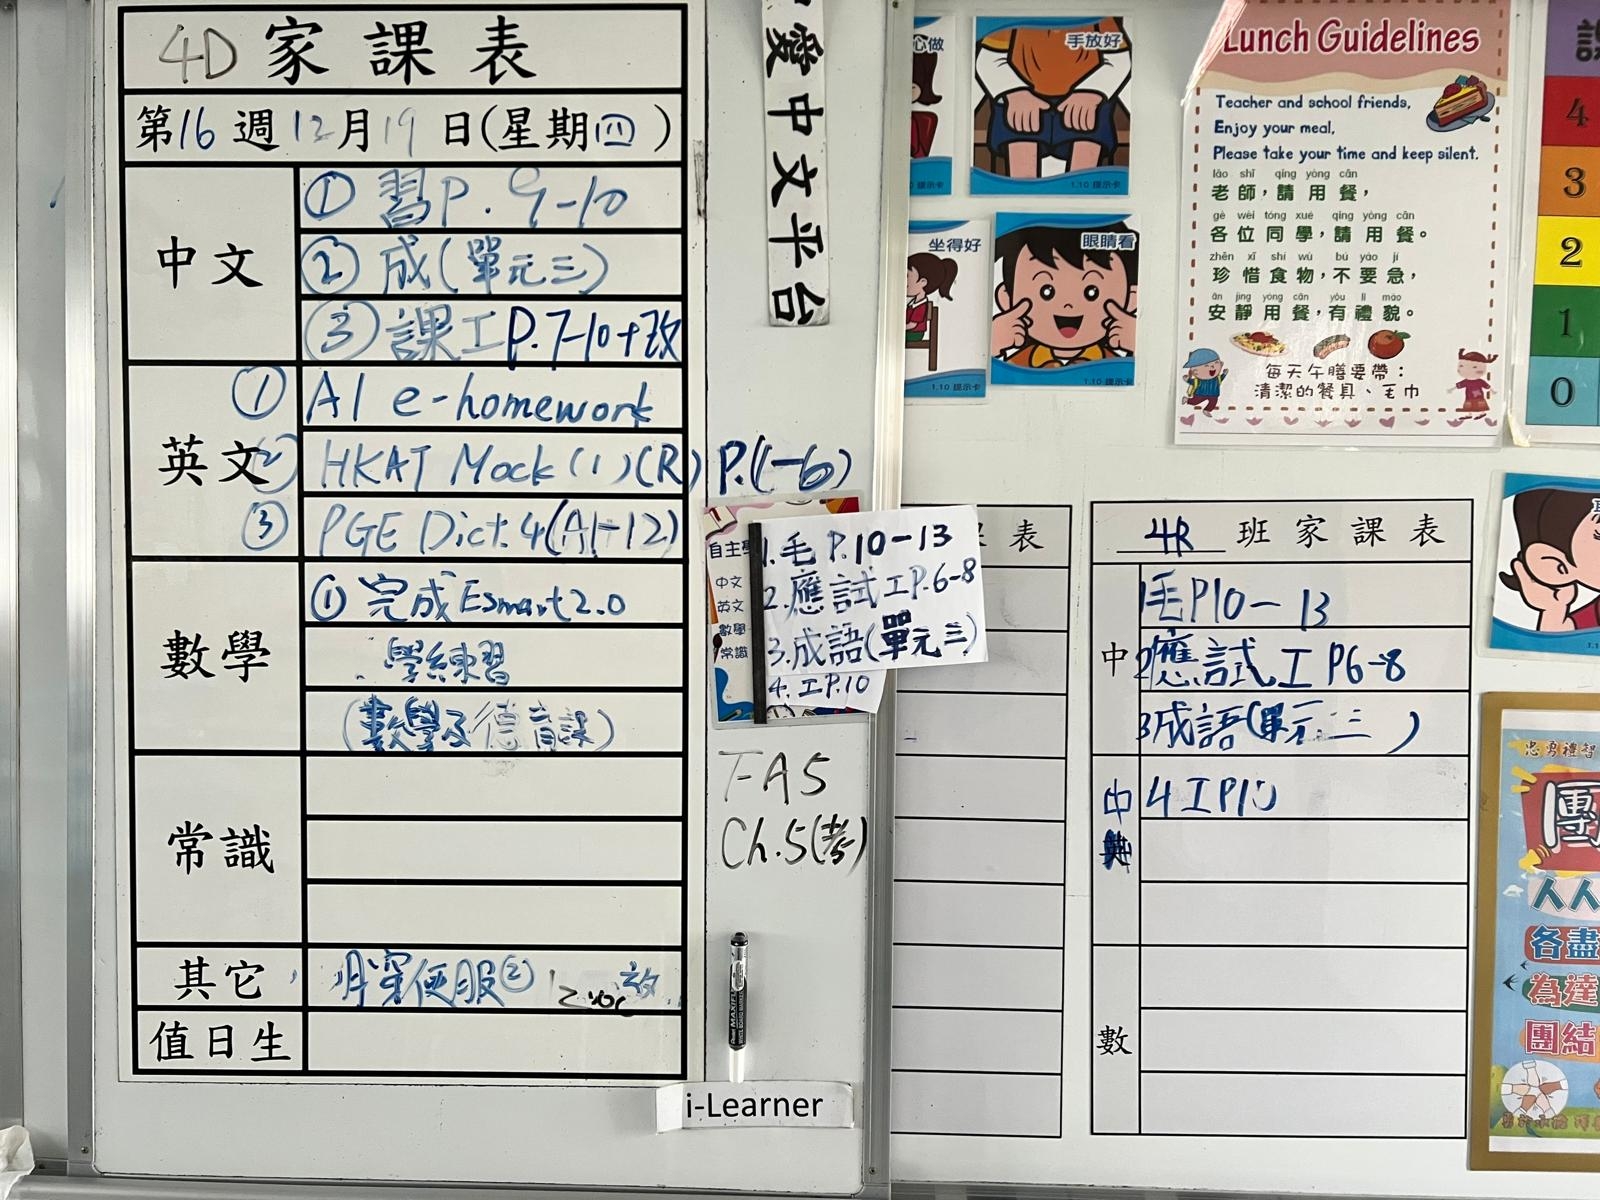 4D 家課表
第16週12月19日(星期四)
中文
① 習P.9-10
② 成(單元三)
③ 課工P.7-10+改
英文
① AI e-homework
② HKAT Mock(1)(R) P.(1-6)
③ PGE Dict.4(A1-12)
數學
① 完成Esmart2.0
學練習
(數學及德育課)
常識
其它
穿便服②
值日生
愛中文平台
自主學
中文
英文
數學
常識
1.毛 P.10-13
2.應試工P.6-8
3.成語(單元三)
4.工P.10
TA5
Ch.5(考)
i-Learner
心做
1.10 提示卡
手放好
1.10 提示卡
坐得好
1.10 提示卡
眼睛看
1.10 提示卡
Lunch Guidelines
Teacher and school friends,
Enjoy your meal,
Please take your time and keep silent.
lǎo shī qǐng yòng cān
老師，請用餐，
gè wèi tóng xué qǐng yòng cān
各位同學，請用餐。
zhēn xī shí wù bú yào jí
珍惜食物，不要急，
ān jìng yòng cān yǒu lǐ mào
安靜用餐，有禮貌。
每天午膳要帶：
清潔的餐具、毛巾
4
3
2
1
0
課表
4R 班家課表
中
1毛P10-13
2應試工P6-8
3成語(單元三)
中
4工P10
數
忠勇禮智
團
人人
各盡
為達
團結